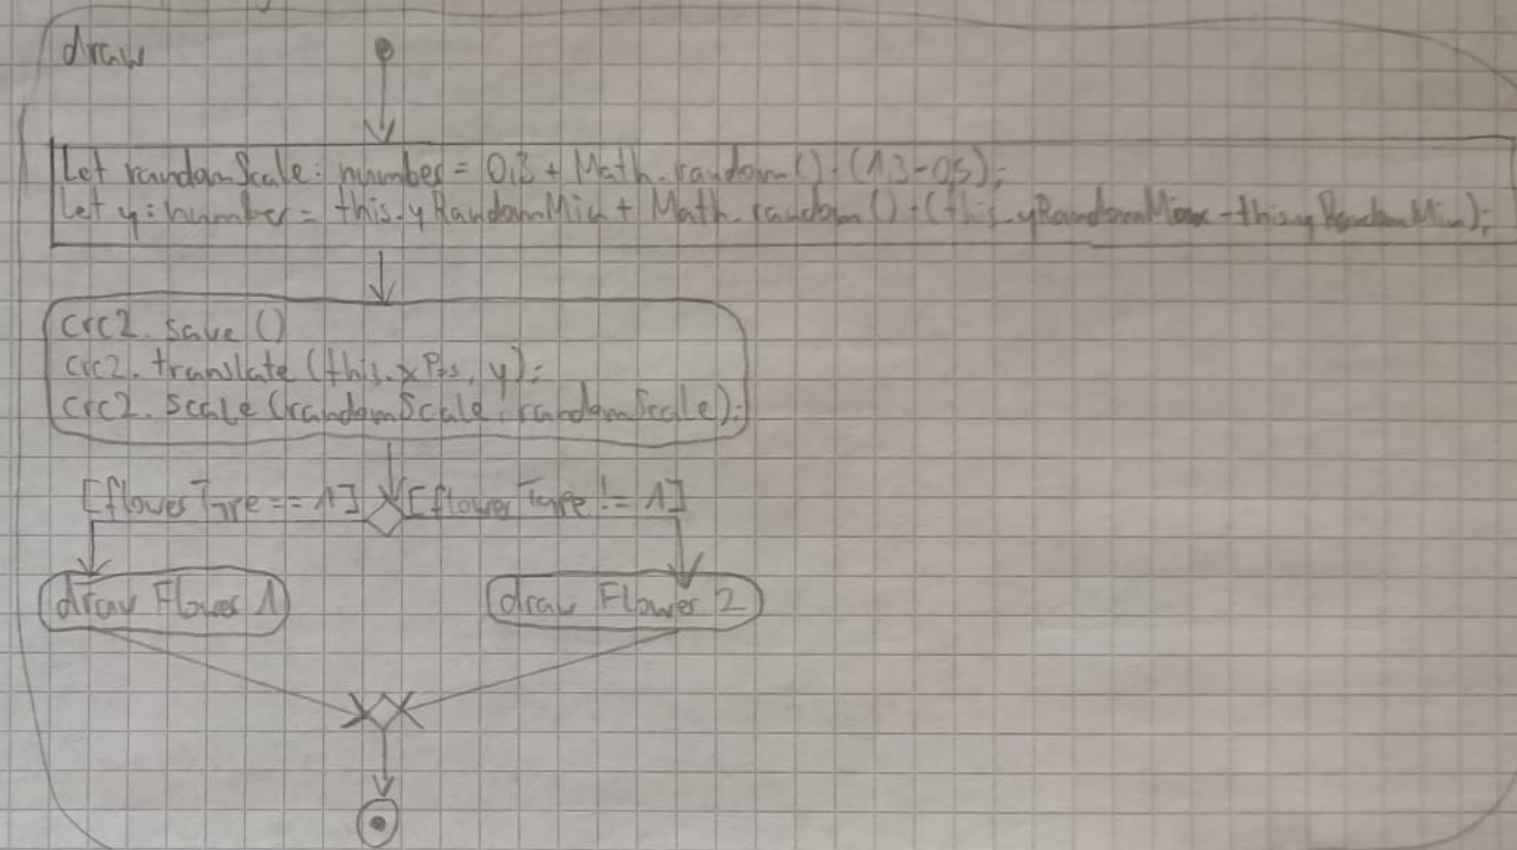 draw
Let randomScale: number = 0,3 + Math.random() · (1,3-0,5);
Let y: number = this.yRandomMin + Math.random() · (this.yRandomMax - this.yRandomMin);
crc2.save()
crc2.translate (this.xPos, y);
crc2.scale (randomScale, randomScale);
[flowerType == 1] [flowerType != 1]
draw Flower 1 draw Flower 2